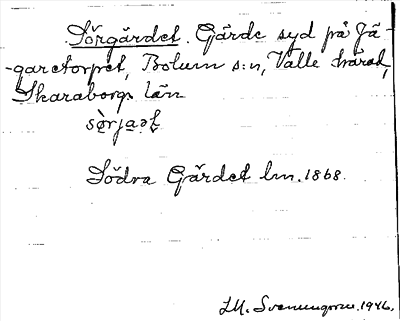 Sörgärdet. Gärde syd på Jä-
-garetorpet, Bolum s:n, Valle härad,
Skaraborgs län
Södra Gärdet lm. 1868.
1946.